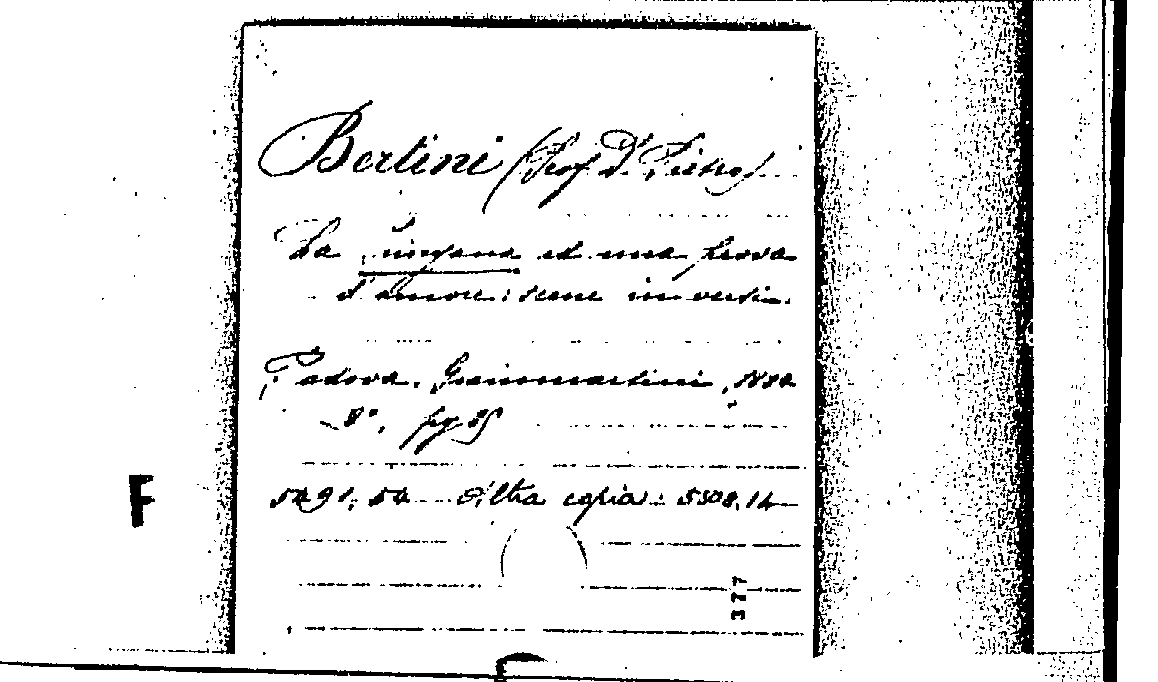 Bertini (Prof. Dr. Pietro)
La zingara ed una prova
d'amore: scene in versi.
Padova, Giammartini, 1880
8°, pg. 25
5291.52 Altra copia: 5308.14
377
F